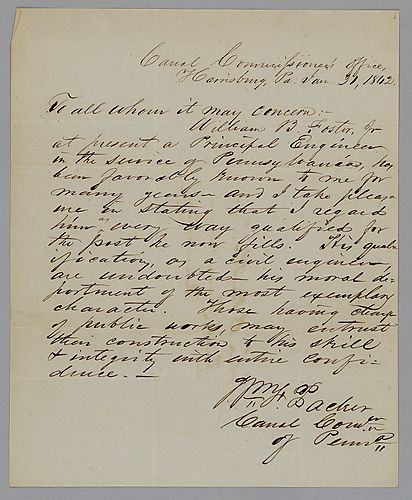 Canal Commissioners Office,
Harrisburg, Pa. Jan 31, 1842.
To all whom it may concern:-
William B Foster, Jr
at present a Principal Engineer
in the service of Pennsylvania, has
been favorably known to me for
many years and I take pleas-
ure in stating that I regard
him as every way qualified for
the post he now fills. His qual-
ifications as a civil engineer
are undoubted his moral de-
portment of the most exemplary
character. Those having charge
of public works, may entrust
their construction to his skill
& integrity with entire confi-
dence. -
Wm F Packer
Canal Comer
of Penna